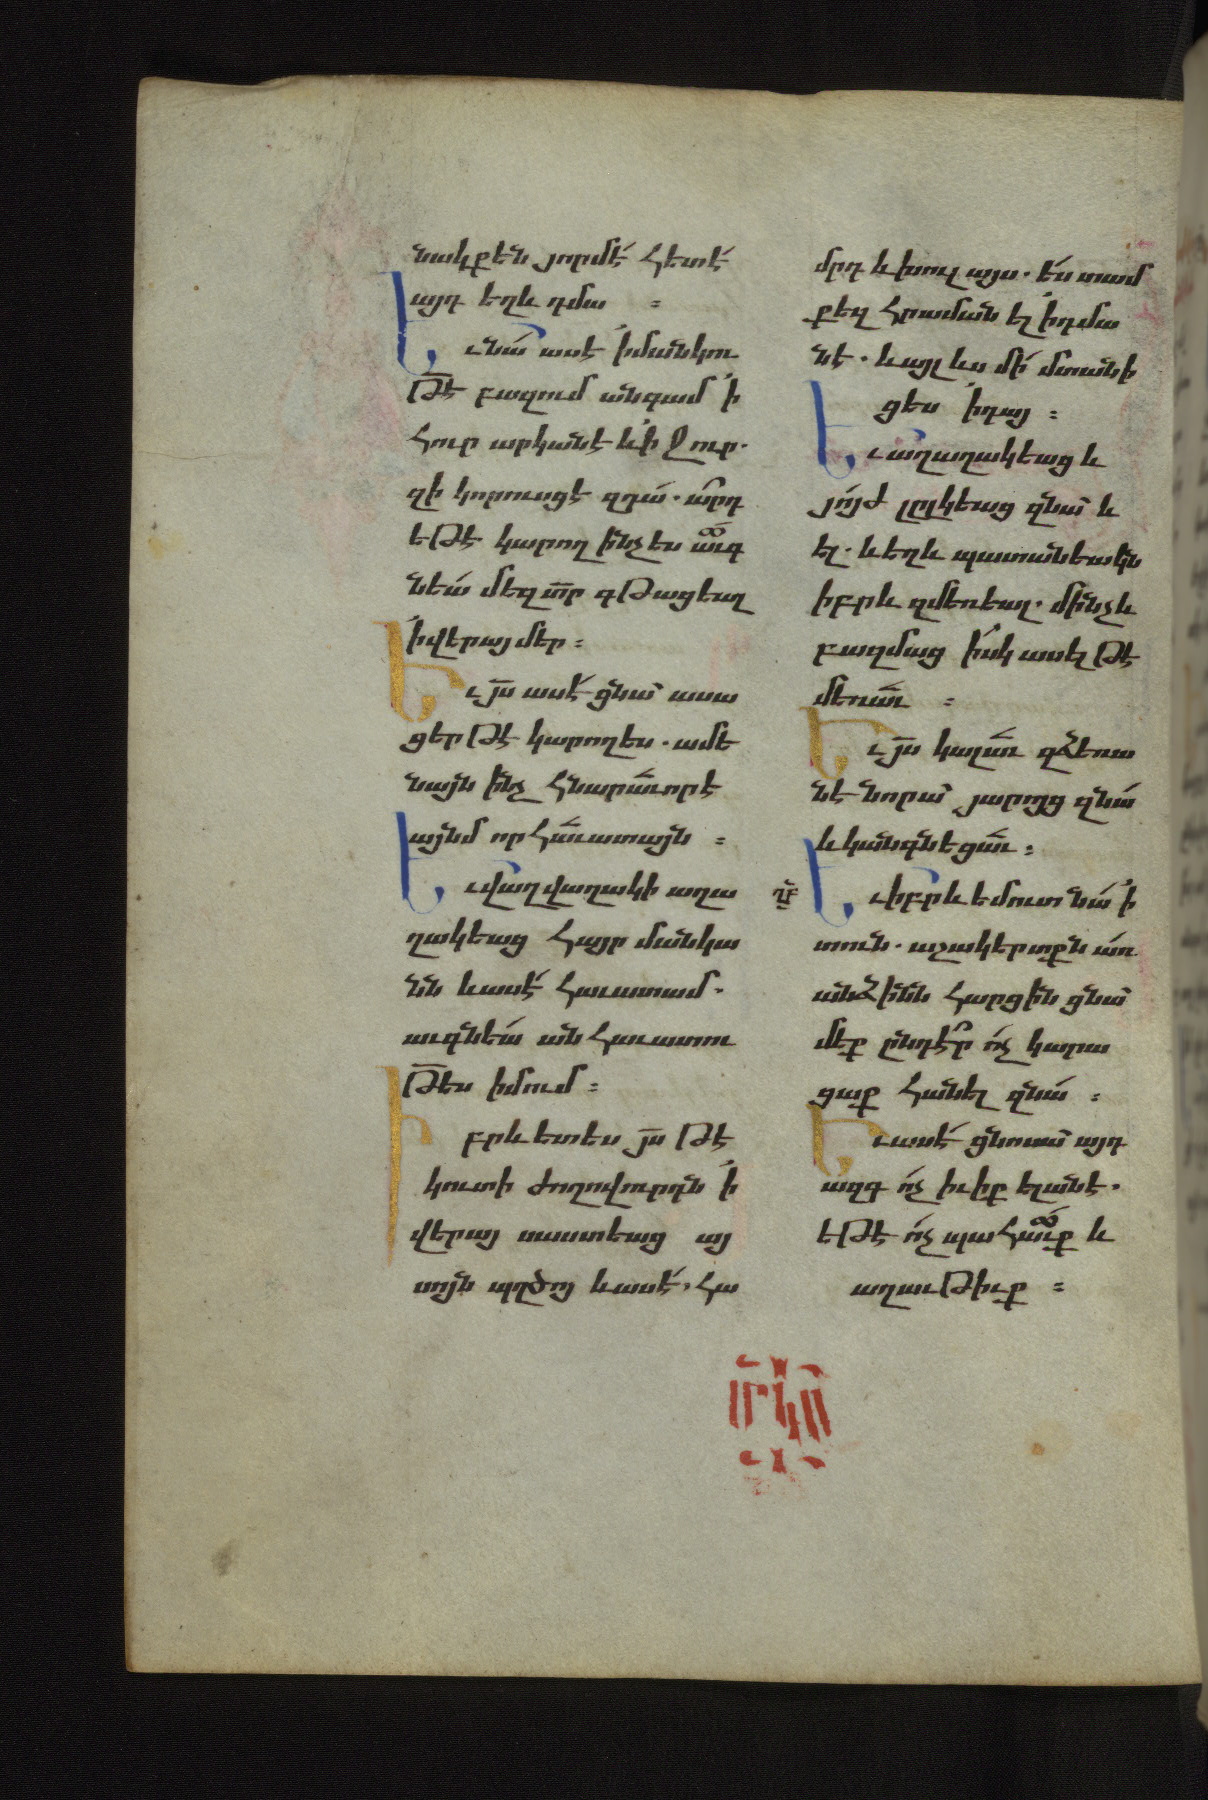 նակքեն յորմէ հետէ
այդ եղև դմա ։
Ւնա ասէ ՛ի մանկու
թէ բազում անգամ ՛ի
հուր արկանէ և ՛ի ջուր.
զի կորուսցէ զդա. այլ
եթէ կարող ինչ ես աւգ
նեա մեզ տր գթացեալ
՛ի վերայ մեր ։
Եւ յս ասէ ցնա ասա
ցեր թէ կարող ես. ամե
նայն ինչ հնարաւոր է
այնմ որ հաւատայն ։
Եւ վաղվաղակի աղա
ղակեաց հայր մանկա
նն և ասէ հաւատամ.
աւգնեա անհաւատու
թես իմում ։
Իբրև ետես յս թէ
կուտի ժողովուրդն ՛ի
վերայ սաստեաց այ
սոյն պղծոյ և ասէ. հա
մրդ և խուլ այս. ես տամ
քեզ հրաման ել ՛ի դմա
նէ. և այլ ևս մի մտանի
ցես ՛ի դայ ։
Եւ աղաղակեաց և
յոյժ լլկեաց զնա և
ել. և եղև պատանեակն
իբրև զմեռեալ. մինչև
բազմաց իսկ ասել թէ
մեռաւ ։
Եւ յս կալաւ զձեռա
նէ նորա յարոյց զնա
և կանգնեցաւ ։
ՂԲ
Եւ իբրև եմուտ նա ՛ի
տուն. աշակերտքն առ
անձինն հարցին ցնա
մեք ընդէր ոչ կարա
ցաք հանել զնա ։
Եւ ասէ ցնոսա այդ
ազգ ոչ իւիք ելանէ.
եթէ ոչ պահաւք և
աղաւթիւք ։